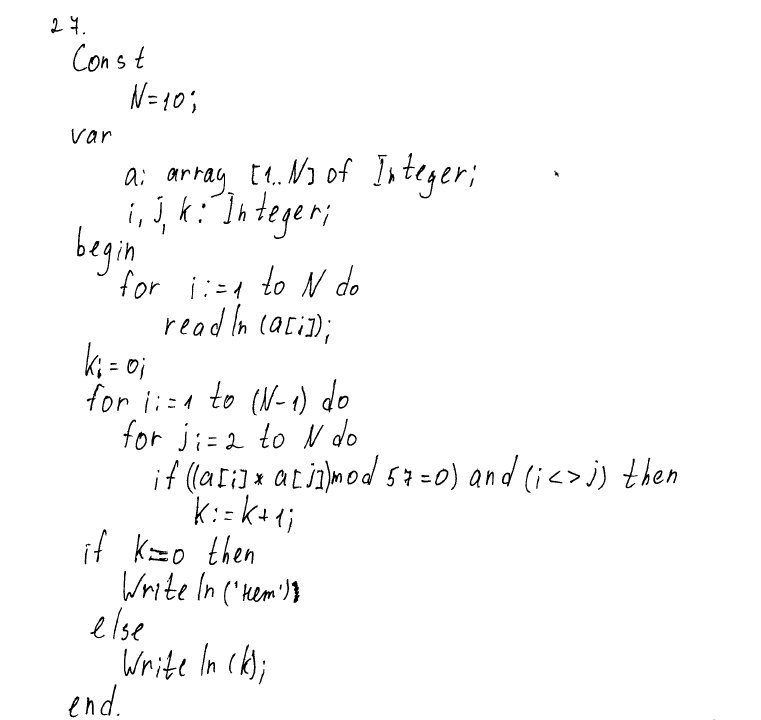 27.
Const
N=10;
var
a: array [1..N] of Integer;
i, j, k: Integer;
begin
for i:=1 to N do
readln (a[i]);
k:=0;
for i:=1 to (N-1) do
for j:=2 to N do
if ((a[i]*a[j])mod 57=0) and (i<>j) then
k:=k+1;
if k=0 then
Writeln ('нет')
else
Writeln (k);
end.